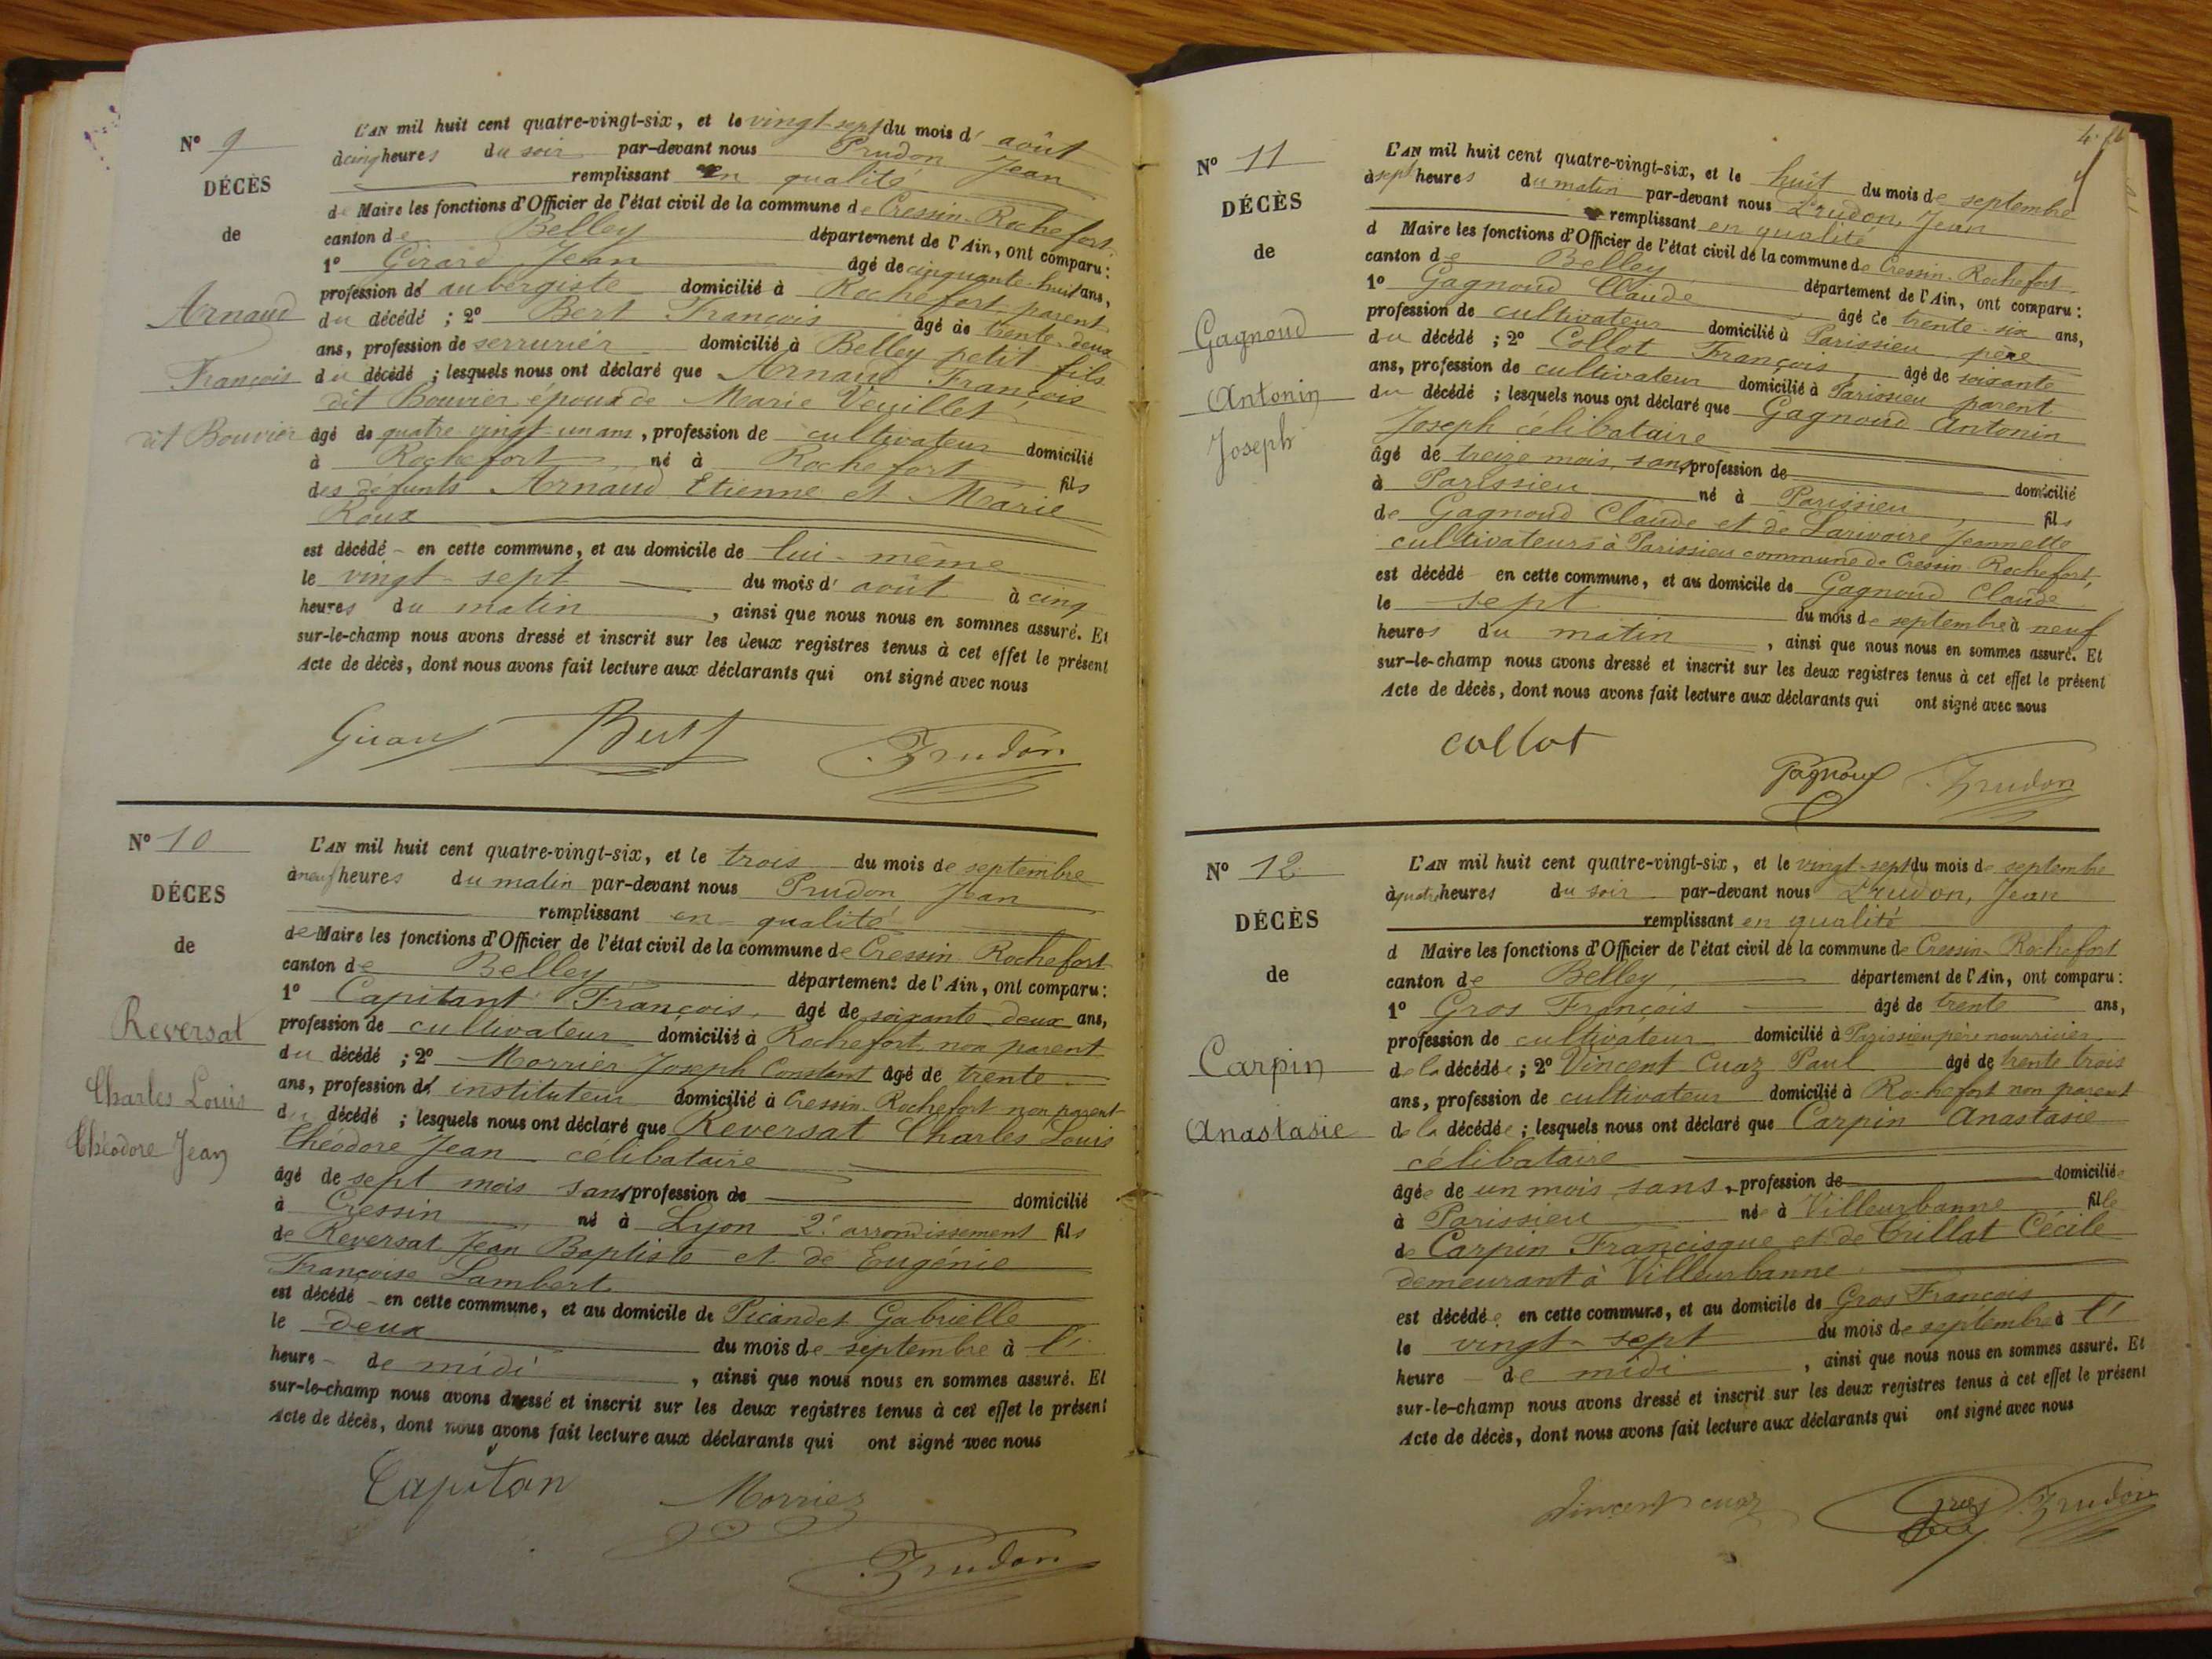 N° 9
DÉCÈS
de
Arnaud
François
dit Bouvier
L'AN mil huit cent quatre-vingt-six, et le vingt-sept du mois d'août
à cinq heures du soir par-devant nous Prudon Jean
remplissant en qualité
de Maire les fonctions d'Officier de l'état civil de la commune de Cressin-Rochefort
canton de Belley département de l'Ain, ont comparu :
1° Girard Jean âgé de cinquante-huit ans,
profession de aubergiste domicilié à Rochefort, parent
du décédé ; 2° Bert François âgé de trente-deux
ans, profession de serrurier domicilié à Belley petit-fils
du décédé ; lesquels nous ont déclaré que Arnaud François
dit Bouvier, époux de Marie Veuillet
âgé de quatre vingt un ans, profession de cultivateur domicilié
à Rochefort né à Rochefort fils
des défunts Arnaud Etienne et Marie
Roux
est décédé en cette commune, et au domicile de lui-même
le vingt-sept du mois d'août à cinq
heures du matin, ainsi que nous nous en sommes assuré. Et
sur-le-champ nous avons dressé et inscrit sur les deux registres tenus à cet effet le présent
Acte de décès, dont nous avons fait lecture aux déclarants qui ont signé avec nous
Girard Bert Prudon
N° 10
DÉCES
de
Reversat
Charles Louis
Théodore Jean
L'AN mil huit cent quatre-vingt-six, et le trois du mois de septembre
à neuf heures du matin par-devant nous Prudon, Jean
remplissant en qualité
de Maire les fonctions d'Officier de l'état civil de la commune de Cressin Rochefort
canton de Belley département de l'Ain, ont comparu :
1° Capitant François, âgé de soixante-deux ans,
profession de cultivateur domicilié à Rochefort non parent
du décédé ; 2° Morrier Joseph Constant âgé de trente
ans, profession de instituteur domicilié à Cressin-Rochefort non parent
du décédé ; lesquels nous ont déclaré que Reversat Charles Louis
Théodore Jean célibataire
âgé de sept mois sans profession de domicilié
à Cressin né à Lyon 2e arrondissement fils
de Reversat Jean Baptiste et de Eugénie
Françoise Lambert
est décédé en cette commune, et au domicile de Picandet Gabrielle
le deux du mois de septembre à l'
heure de midi, ainsi que nous nous en sommes assuré. Et
sur-le-champ nous avons dressé et inscrit sur les deux registres tenus à cet effet le présent
Acte de décès, dont nous avons fait lecture aux déclarants qui ont signé avec nous
Capitan Morrier
Prudon
N° 11
DÉCÈS
de
Gagnoud
Antonin
Joseph
L'AN mil huit cent quatre-vingt-six, et le huit du mois de septembre
à sept heures du matin par-devant nous Prudon, Jean
remplissant en qualité
d Maire les fonctions d'Officier de l'état civil de la commune de Cressin-Rochefort
canton de Belley département de l'Ain, ont comparu :
1° Gagnoud Claude âgé de trente-six ans,
profession de cultivateur domicilié à Parissieu père
du décédé ; 2° Collot François, âgé de soixante
ans, profession de cultivateur domicilié à Parissieu parent
du décédé ; lesquels nous ont déclaré que Gagnoud Antonin
Joseph célibataire
âgé de treize mois, sans profession de domicilié
à Parissieu né à Parissieu, fils
de Gagnoud Claude et de Larivoire Jeannette
cultivateurs à Parissieu commune de Cressin-Rochefort,
est décédé en cette commune, et au domicile de Gagnoud Claude
le sept du mois de septembre à neuf
heures du matin, ainsi que nous nous en sommes assuré. Et
sur-le-champ nous avons dressé et inscrit sur les deux registres tenus à cet effet le présent
Acte de décès, dont nous avons fait lecture aux déclarants qui ont signé avec nous
Collot
Gagnoud Prudon
N° 12
DÉCÈS
de
Carpin
Anastasie
L'AN mil huit cent quatre-vingt-six, et le vingt-sept du mois de septembre
à quatre heures du soir par-devant nous Prudon, Jean
remplissant en qualité
d Maire les fonctions d'Officier de l'état civil de la commune de Cressin-Rochefort
canton de Belley, département de l'Ain, ont comparu :
1° Gros François âgé de trente ans,
profession de cultivateur domicilié à Parissieu père nourricier
de la décédée ; 2° Vincent Cuaz Paul âgé de trente trois
ans, profession de cultivateur domicilié à Rochefort non parent
de la décédée ; lesquels nous ont déclaré que Carpin Anastasie
célibataire
âgée de un mois, sans, profession de domiciliée
à Parissieu née à Villeurbanne fille
de Carpin Francisque et de Trillat Cécile
demeurant à Villeurbanne
est décédée en cette commune, et au domicile de Gros François
le vingt-sept du mois de septembre à l'
heure de midi, ainsi que nous nous en sommes assuré. Et
sur-le-champ nous avons dressé et inscrit sur les deux registres tenus à cet effet le présent
Acte de décès, dont nous avons fait lecture aux déclarants qui ont signé avec nous
Vincent cuaz Gros Prudon